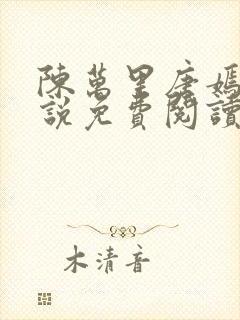 陳萬里唐嫣
說免費閱讀
木清音